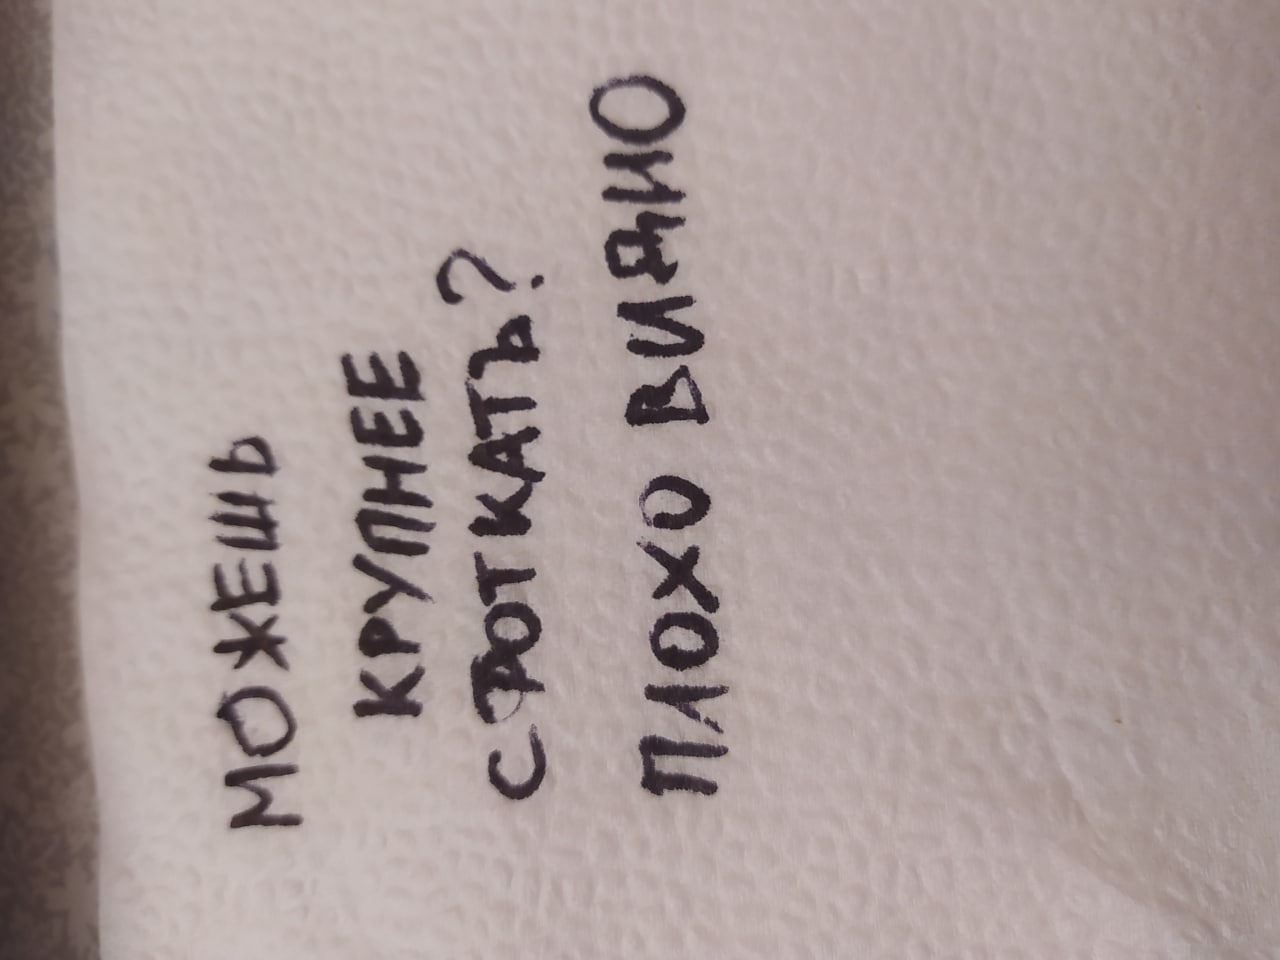 МОЖЕШЬ
КРУПНЕЕ
СФОТКАТЬ?
ПЛОХО ВИДНО